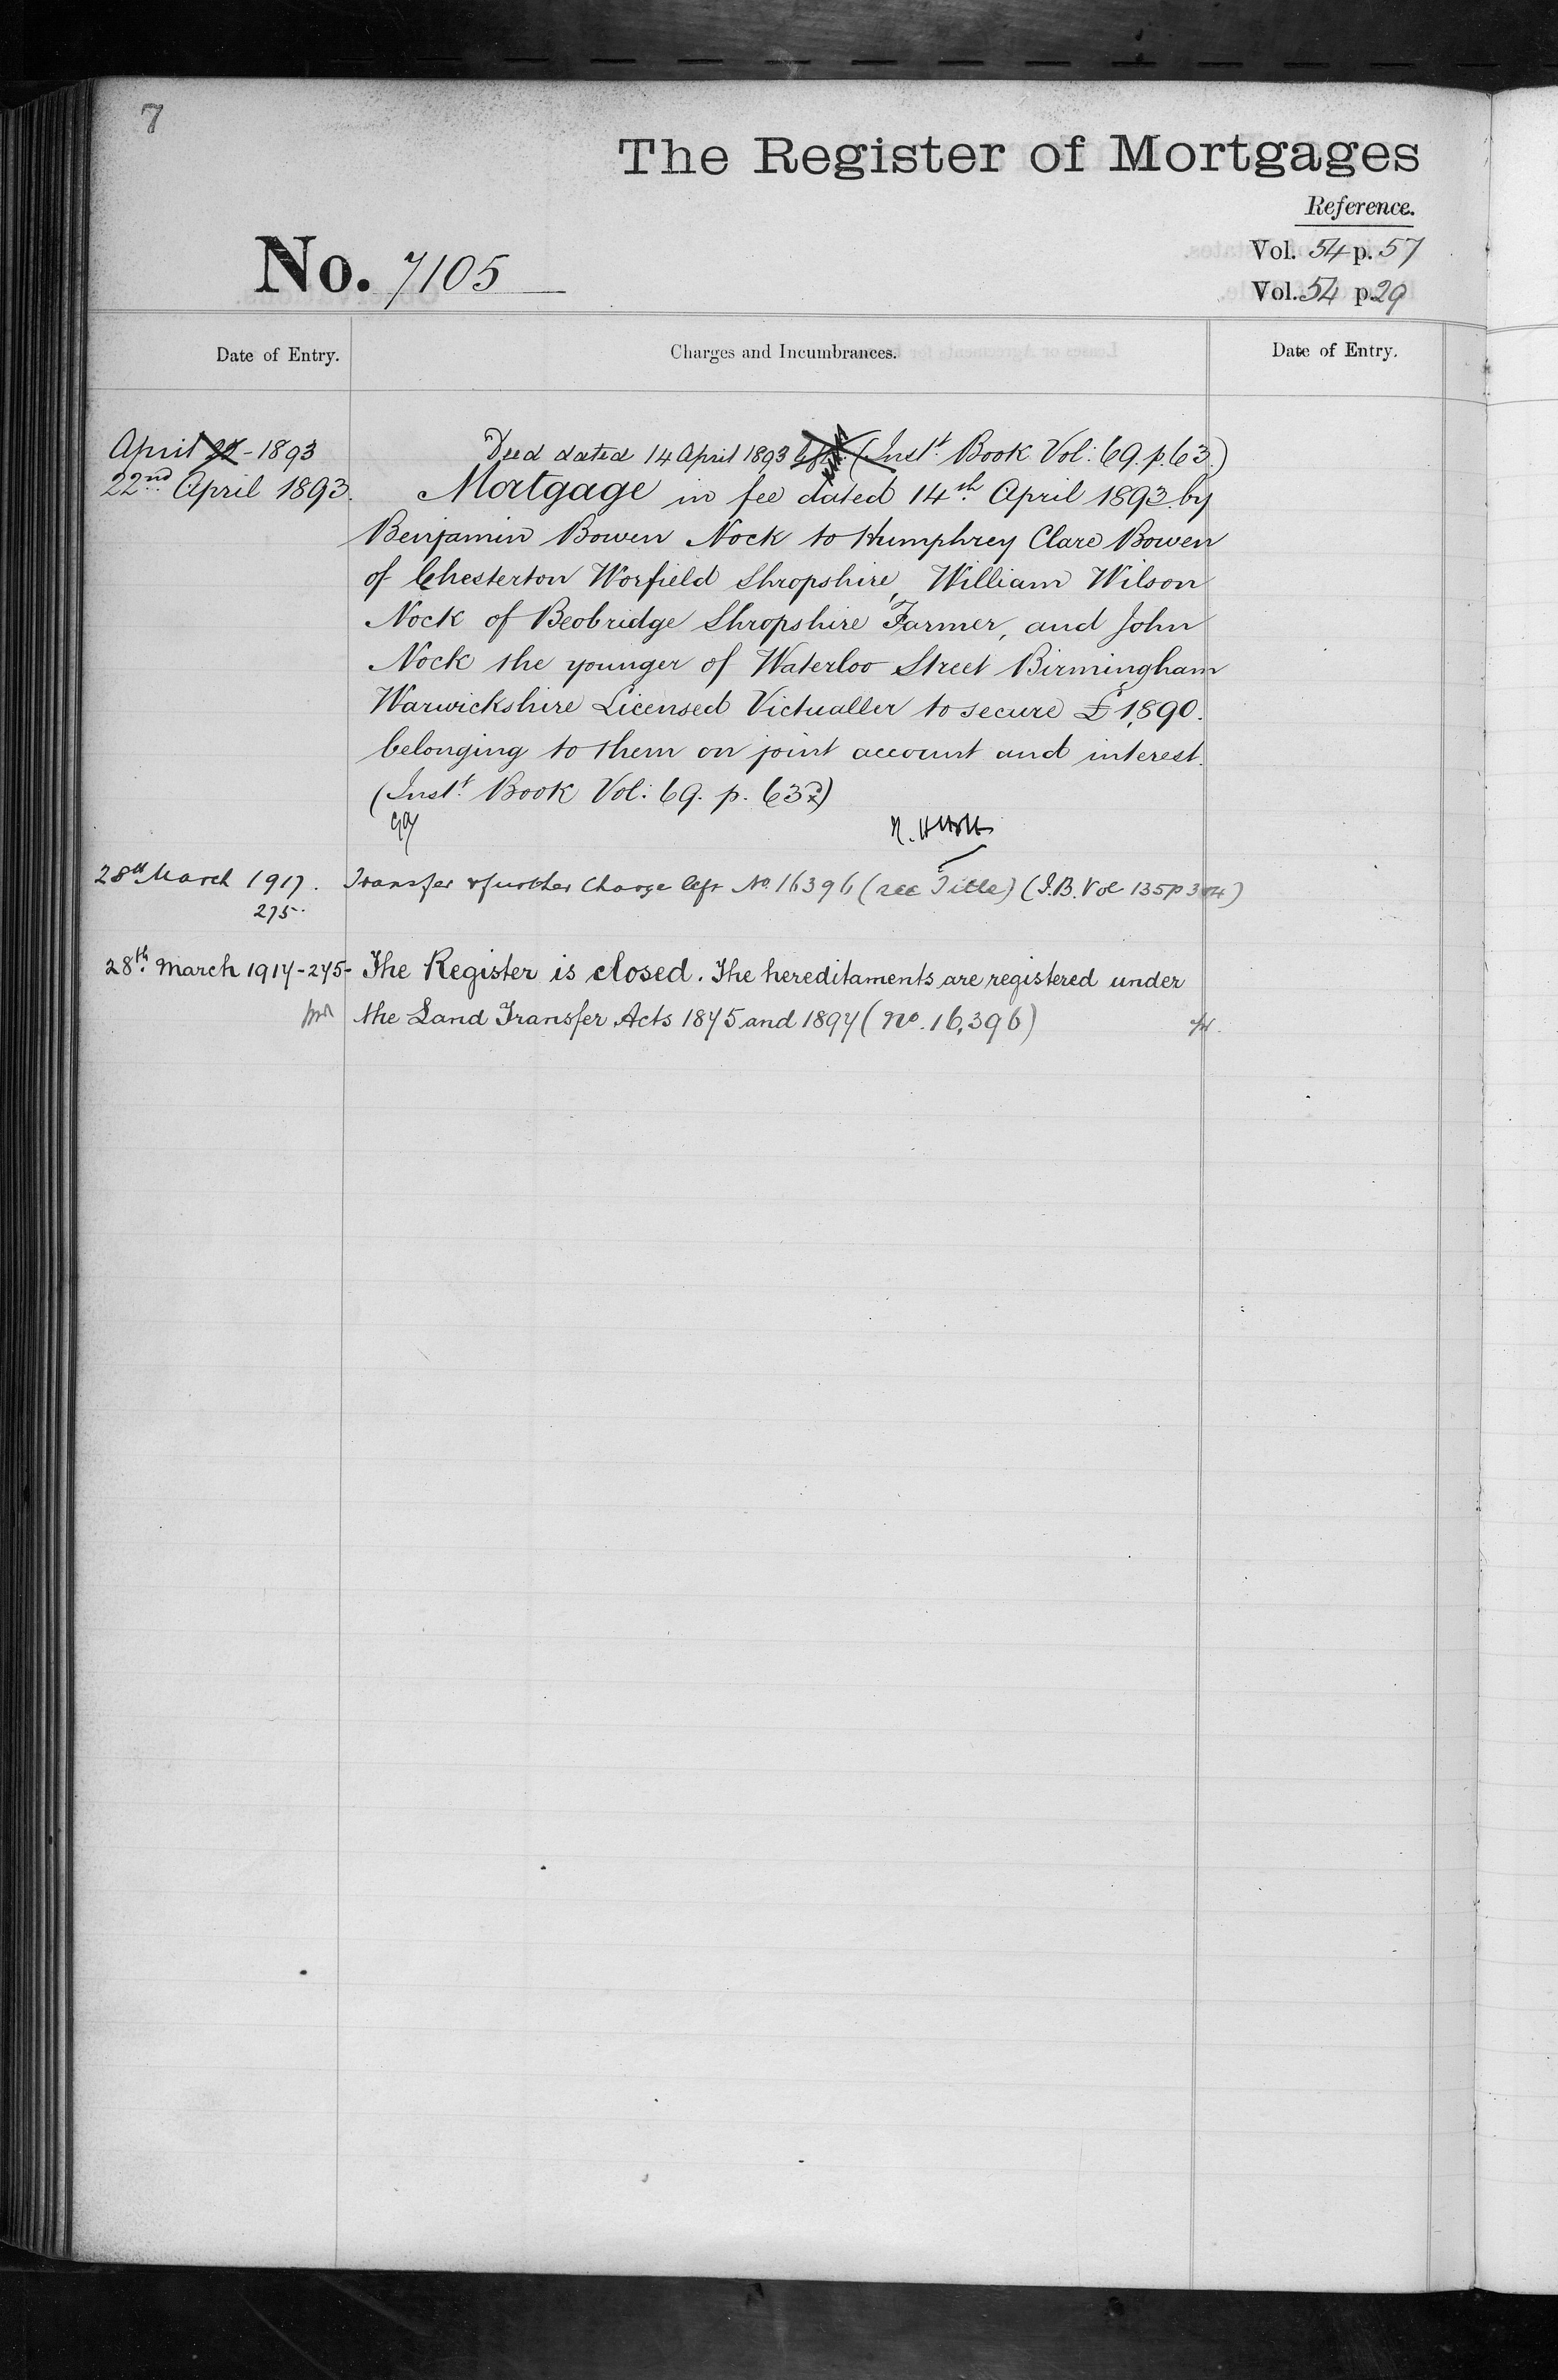 7
The Register of Mortgages
Reference.
No. 7105
Vol. 54 p. 57
Vol. 54 p. 29
Date of Entry.
Charges and Incumbrances.
Date of Entry.
April 22 - 1893
Deed dated 14 April 1893 left (Inst. Book Vol: 69. p. 63.)
22nd April 1893.
Mortgage in fee dated 14th April 1893 by
Benjamin Bowen Nock to Humphrey Clare Bowen
of Chesterton Worfield Shropshire, William Wilson
Nock of Beobridge Shropshire Farmer, and John
Nock the younger of Waterloo Street Birmingham
Warwickshire Licensed Victualler to secure £1,890.
belonging to them on joint account and interest.
(Inst. Book Vol: 69. p. 63)
28th March 1917.
Transfer & further Charge left No. 16396 (see Title) (I.B. Vol 135 p 304)
275.
28th March 1917-275-
The Register is closed. The hereditaments are registered under
the Land Transfer Acts 1875 and 1897 (No. 16,396)